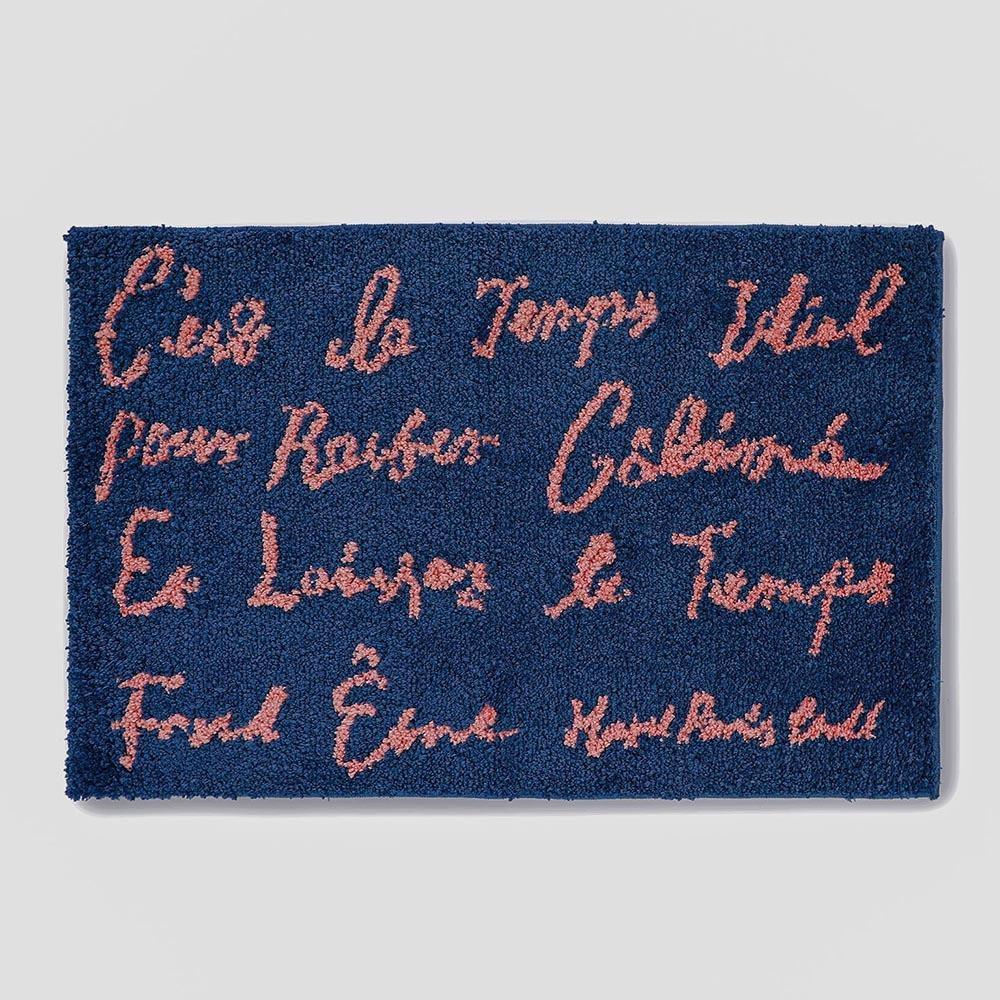 C'est le Temps Idéal
pour Rester Câliner
Et Laisser le Temps
Fond Être